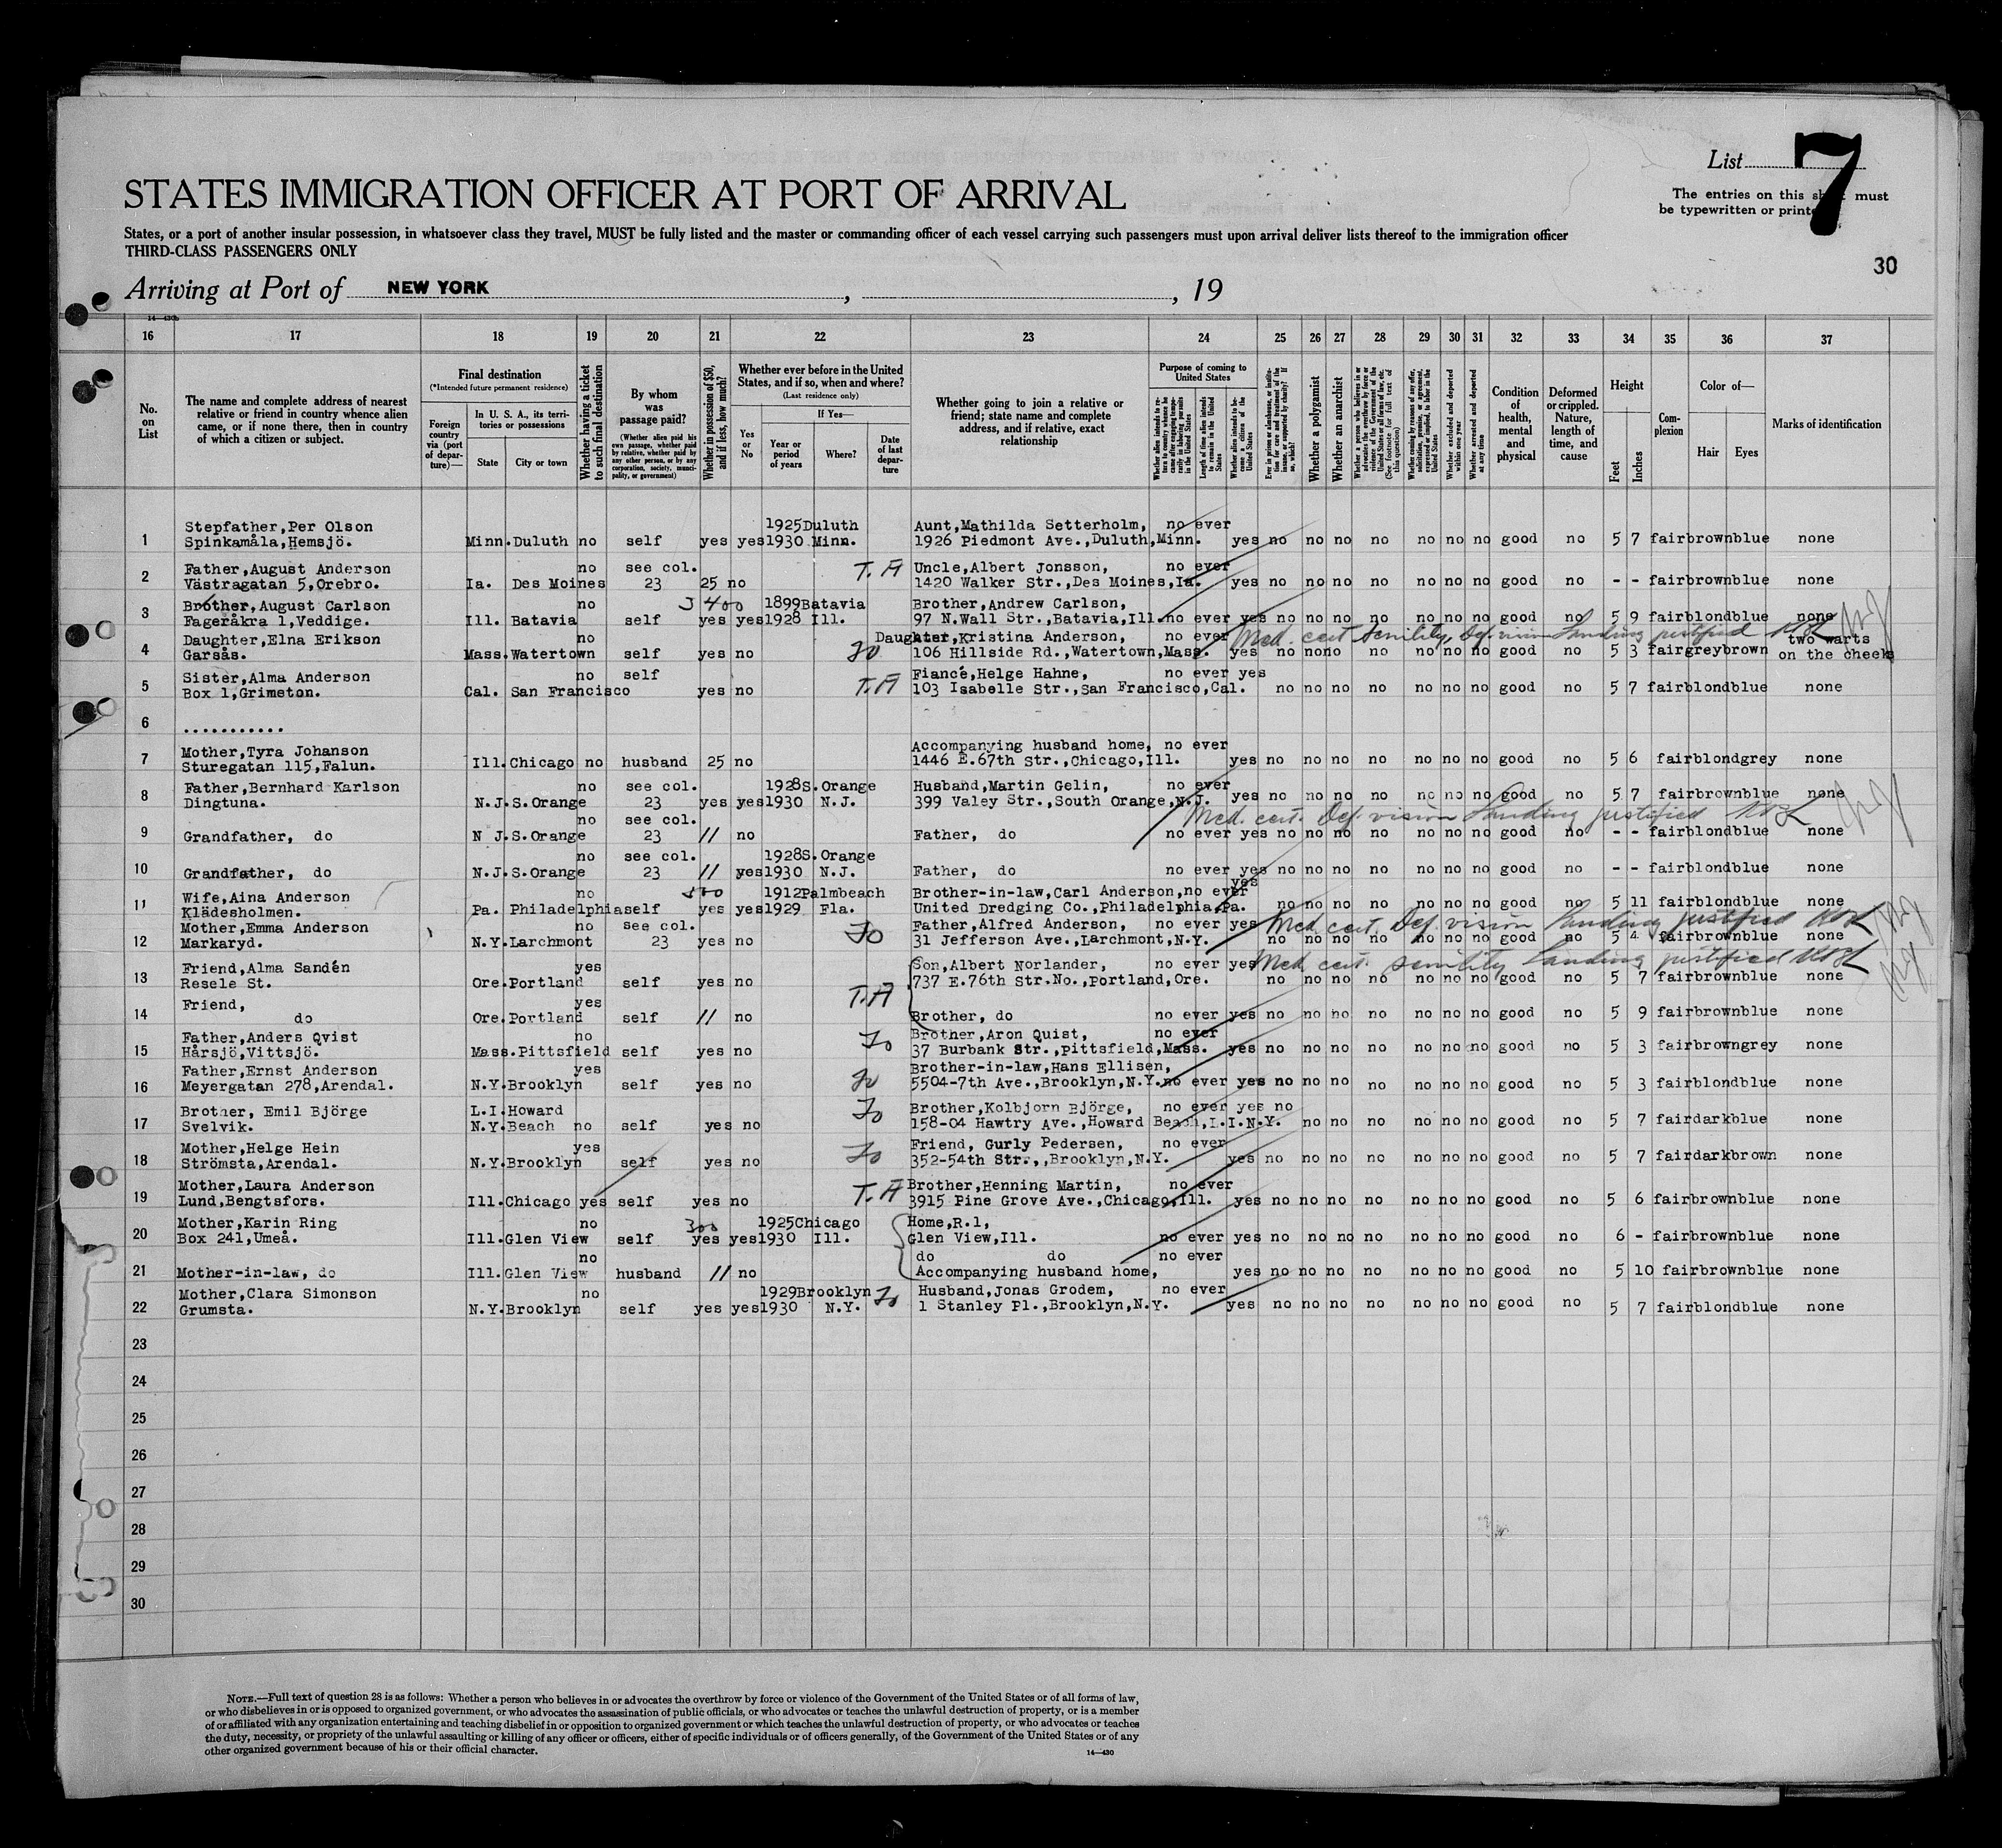 List 7
STATES IMMIGRATION OFFICER AT PORT OF ARRIVAL
The entries on this must
be typewritten or
States, or a port of another insular possession, in whatsoever class they travel, MUST be fully listed and the master or commanding officer of each vessel carrying such passengers must upon arrival deliver lists thereof to the immigration officer
THIRD-CLASS PASSENGERS ONLY
30
Arriving at Port of NEW YORK , , 19
16 17 18 19 20 21 22 23 24 25 26 27 28 29 30 31 32 33 34 35 36 37
No. on List
The name and complete address of nearest relative or friend in country whence alien came, or if none there, then in country of which a citizen or subject.
Final destination
(*Intended future permanent residence)
Foreign country via (port of departure)—
In U. S. A., its territories or possessions
State City or town
Whether having a ticket to such final destination
By whom was passage paid?
(Whether alien paid his own passage, whether paid by relative, whether paid by any other person, or by any corporation, society, municipality, or government)
Whether in possession of $50, and if less, how much?
Whether ever before in the United States, and if so, when and where?
(Last residence only)
Yes or No
If Yes—
Year or period of years Where? Date of last departure
Whether going to join a relative or friend; state name and complete address, and if relative, exact relationship
Purpose of coming to United States
Length of time alien intends to remain in the United States
Whether alien intends to become a citizen of the United States
Whether a polygamist
Whether an anarchist
Whether excluded and deported within one year
Whether arrested and deported at any time
Condition of health, mental and physical
Deformed or crippled. Nature, length of time, and cause
Height
Feet Inches
Complexion
Color of—
Hair Eyes
Marks of identification
1 Stepfather,Per Olson 1925 Duluth Aunt,Mathilda Setterholm, no ever
Spinkamåla,Hemsjö. Minn. Duluth no self yes yes 1930 Minn. 1926 Piedmont Ave.,Duluth,Minn. yes no no no no no no no good no 5 7 fair brown blue none
2 Father,August Anderson no see col. T.A Uncle,Albert Jonsson, no ever
Västragatan 5,Orebro. Ia. Des Moines 23 25 no 1420 Walker Str.,Des Moines,Ia. yes no no no no no no no good no - - fair brown blue none
3 Brother,August Carlson no 400 1899 Batavia Brother,Andrew Carlson,
Fageråkra 1,Veddige. Ill. Batavia self yes yes 1928 Ill. 97 N.Wall Str.,Batavia,Ill. no ever yes no no no no no no no good no 5 9 fair blond blue none
Med. cert. Senility, Def. vision Landing justified
4 Daughter,Elna Erikson no Daughter,Kristina Anderson, no ever two warts
Garsås. Mass. Watertown self yes no 106 Hillside Rd.,Watertown,Mass. yes no no no no no no no good no 5 3 fair grey brown on the cheeks
5 Sister,Alma Anderson no self T.A Fiancé,Helge Hahne, no ever yes
Box 1,Grimeton. Cal. San Francisco yes no 103 Isabelle Str.,San Francisco,Cal. no no no no no no no good no 5 7 fair blond blue none
6 ...........
7 Mother,Tyra Johanson Accompanying husband home, no ever
Sturegatan 115,Falun. Ill. Chicago no husband 25 no 1446 E.67th Str.,Chicago,Ill. yes no no no no no no no good no 5 6 fair blond grey none
8 Father,Bernhard Karlson no see col. 1928 S.Orange Husband,Martin Gelin, no ever
Dingtuna. N.J. S.Orange 23 yes yes 1930 N.J. 399 Valey Str.,South Orange,N.J. yes no no no no no no no good no 5 7 fair brown blue none
Med. cert. Def. vision Landing justified
no see col.
9 Grandfather, do N J. S.Orange 23 // no Father, do no ever yes no no no no no no no good no - - fair blond blue none
no see col. 1928 S.Orange
10 Grandfather, do N.J. S.Orange 23 // yes 1930 N.J. Father, do no ever yes no no no no no no no good no - - fair blond blue none
11 Wife,Aina Anderson no 500 1912 Palmbeach Brother-in-law,Carl Anderson, no ever yes
Klädesholmen. Pa. Philadelphia self yes yes 1929 Fla. United Dredging Co.,Philadelphia,Pa. no no no no no no no good no 5 11 fair blond blue none
Med. cert. Def. vision Landing justified
12 Mother,Emma Anderson no see col. Father,Alfred Anderson, no ever yes
Markaryd. N.Y. Larchmont 23 yes no 31 Jefferson Ave.,Larchmont,N.Y. no no no no no no no good no 5 4 fair brown blue none
Med. cert. senility Landing justified
13 Friend,Alma Sandén yes Son,Albert Norlander, no ever yes
Resele St. Ore. Portland self yes no 737 E.76th Str.No.,Portland,Ore. no no no no no no no good no 5 7 fair brown blue none
14 Friend, yes T.A
do Ore. Portland self // no Brother, do no ever yes no no no no no no no good no 5 9 fair brown blue none
15 Father,Anders Qvist no Brother,Aron Quist, no ever
Hårsjö,Vittsjö. Mass. Pittsfield self yes no 37 Burbank Str.,Pittsfield,Mass. yes no no no no no no no good no 5 3 fair brown grey none
16 Father,Ernst Anderson yes Brother-in-law,Hans Ellisen,
Meyergatan 278,Arendal. N.Y. Brooklyn self yes no 5504-7th Ave.,Brooklyn,N.Y. no ever yes no no no no no no no good no 5 3 fair blond blue none
17 Brother, Emil Björge L.I. Howard Brother,Kolbjorn Björge, no ever yes no
Svelvik. N.Y. Beach no self yes no 158-04 Hawtry Ave.,Howard Beach,L.I.N.Y. no no no no no no good no 5 7 fair dark blue none
18 Mother,Helge Hein yes Friend, Gurly Pedersen, no ever
Strömsta,Arendal. N.Y. Brooklyn self yes no 352-54th Str.,,Brooklyn,N.Y. yes no no no no no no no good no 5 7 fair dark brown none
19 Mother,Laura Anderson T.A Brother,Henning Martin, no ever
Lund,Bengtsfors. Ill. Chicago yes self yes no 3915 Pine Grove Ave.,Chicago,Ill. yes no no no no no no no good no 5 6 fair brown blue none
20 Mother,Karin Ring no 300 1925 Chicago Home,R.1,
Box 241,Umeå. Ill. Glen View self yes yes 1930 Ill. Glen View,Ill. no ever yes no no no no no no no good no 6 - fair brown blue none
no do do no ever
21 Mother-in-law, do Ill. Glen View husband // no Accompanying husband home, yes no no no no no no no good no 5 10 fair brown blue none
22 Mother,Clara Simonson no 1929 Brooklyn Husband,Jonas Grodem, no ever
Grumsta. N.Y. Brooklyn self yes yes 1930 N.Y. 1 Stanley Pl.,Brooklyn,N.Y. yes no no no no no no no good no 5 7 fair blond blue none
23
24
25
26
27
28
29
30
NOTE.—Full text of question 28 is as follows: Whether a person who believes in or advocates the overthrow by force or violence of the Government of the United States or of all forms of law,
or who disbelieves in or is opposed to organized government, or who advocates the assassination of public officials, or who advocates or teaches the unlawful destruction of property, or is a member
of or affiliated with any organization entertaining and teaching disbelief in or opposition to organized government or which teaches the unlawful destruction of property, or who advocates or teaches
the duty, necessity, or propriety of the unlawful assaulting or killing of any officer or officers, either of specific individuals or of officers generally, of the Government of the United States or of any
other organized government because of his or their official character.
14—430